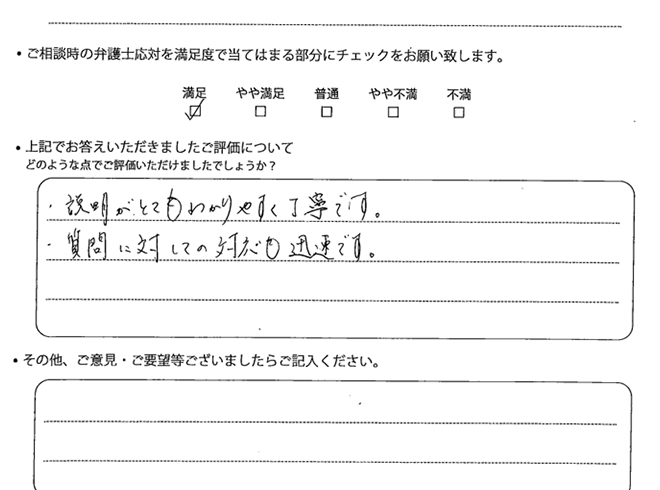 ・ご相談時の弁護士応対を満足度で当てはまる部分にチェックをお願い致します。
満足 やや満足 普通 やや不満 不満
・上記でお答えいただきましたご評価について
どのような点でご評価いただけましたでしょうか？
・説明がとてもわかりやすく丁寧です。
・質問に対しての対応も迅速です。
・その他、ご意見・ご要望等ございましたらご記入ください。